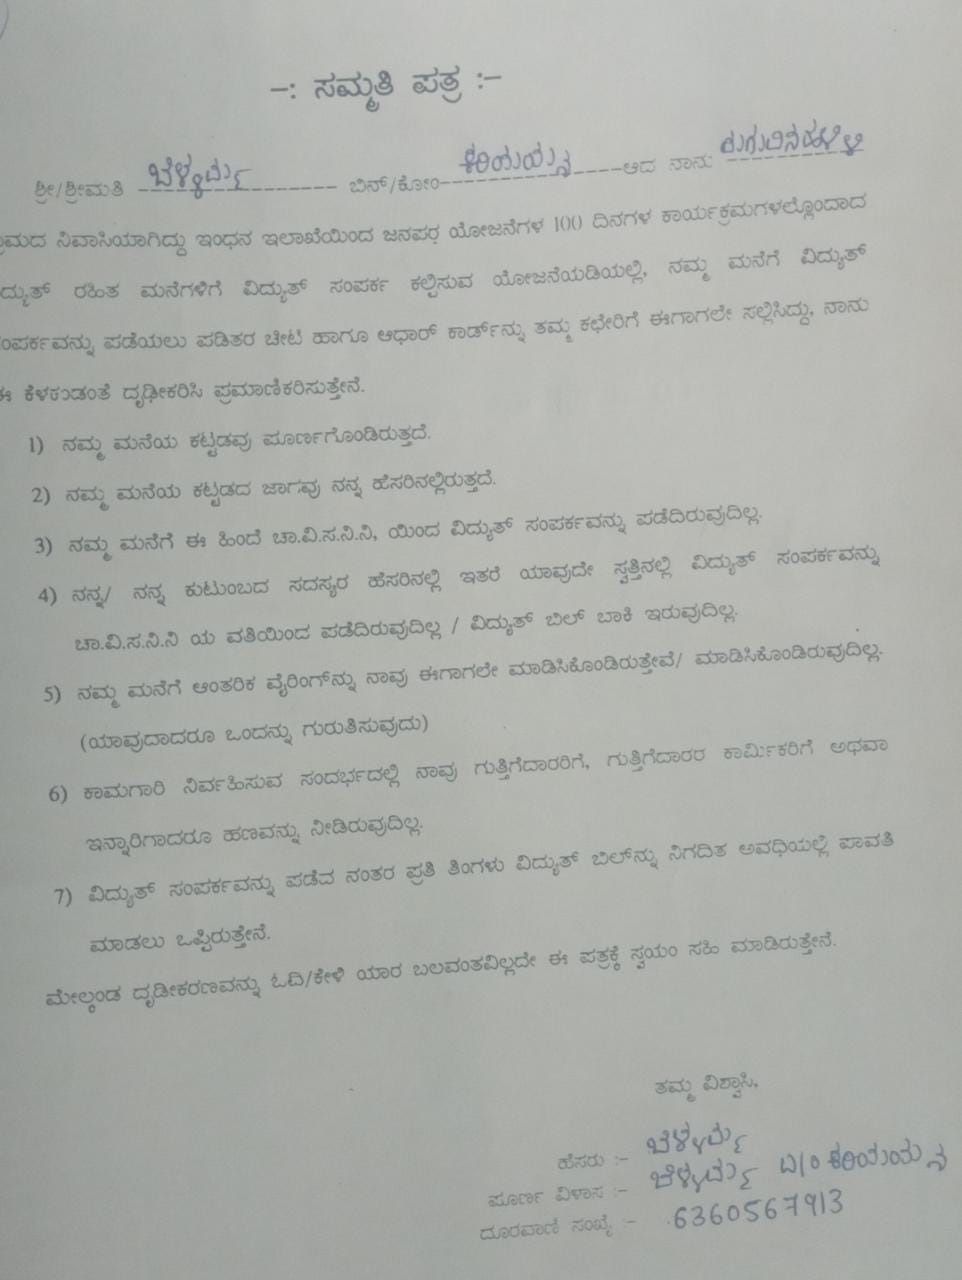 -: ಸಮ್ಮತಿ ಪತ್ರ :-
ಶ್ರೀ/ಶ್ರೀಮತಿ ಬೆಳ್ಳಮ್ಮ ಬಿನ್/ಕೋಂ ಕರಿಯಯ್ಯನ ಆದ ನಾನು
ನಿವಾಸಿಯಾಗಿದ್ದು ಇಂಧನ ಇಲಾಖೆಯಿಂದ ಜನಪರ ಯೋಜನೆಗಳ 100 ದಿನಗಳ ಕಾರ್ಯಕ್ರಮಗಳಲ್ಲೊಂದಾದ
ದ್ಯುತ್ ರಹಿತ ಮನೆಗಳಿಗೆ ವಿದ್ಯುತ್ ಸಂಪರ್ಕ ಕಲ್ಪಿಸುವ ಯೋಜನೆಯಡಿಯಲ್ಲಿ, ನಮ್ಮ ಮನೆಗೆ ವಿದ್ಯುತ್
ಂಪರ್ಕವನ್ನು ಪಡೆಯಲು ಪಡಿತರ ಚೀಟಿ ಹಾಗೂ ಆಧಾರ್ ಕಾರ್ಡ್‌ನ್ನು ತಮ್ಮ ಕಛೇರಿಗೆ ಈಗಾಗಲೇ ಸಲ್ಲಿಸಿದ್ದು, ನಾನು
ಈ ಕೆಳಕಂಡಂತೆ ದೃಢೀಕರಿಸಿ ಪ್ರಮಾಣಿಕರಿಸುತ್ತೇನೆ.
1) ನಮ್ಮ ಮನೆಯ ಕಟ್ಟಡವು ಪೂರ್ಣಗೊಂಡಿರುತ್ತದೆ.
2) ನಮ್ಮ ಮನೆಯ ಕಟ್ಟಡದ ಜಾಗವು ನನ್ನ ಹೆಸರಿನಲ್ಲಿರುತ್ತದೆ.
3) ನಮ್ಮ ಮನೆಗೆ ಈ ಹಿಂದೆ ಚಾ.ವಿ.ಸ.ನಿ.ನಿ, ಯಿಂದ ವಿದ್ಯುತ್ ಸಂಪರ್ಕವನ್ನು ಪಡೆದಿರುವುದಿಲ್ಲ.
4) ನನ್ನ/ ನನ್ನ ಕುಟುಂಬದ ಸದಸ್ಯರ ಹೆಸರಿನಲ್ಲಿ ಇತರೆ ಯಾವುದೇ ಸ್ವತ್ತಿನಲ್ಲಿ ವಿದ್ಯುತ್ ಸಂಪರ್ಕವನ್ನು
ಚಾ.ವಿ.ಸ.ನಿ.ನಿ ಯ ವತಿಯಿಂದ ಪಡೆದಿರುವುದಿಲ್ಲ / ವಿದ್ಯುತ್ ಬಿಲ್ ಬಾಕಿ ಇರುವುದಿಲ್ಲ.
5) ನಮ್ಮ ಮನೆಗೆ ಆಂತರಿಕ ವೈರಿಂಗ್‌ನ್ನು ನಾವು ಈಗಾಗಲೇ ಮಾಡಿಸಿಕೊಂಡಿರುತ್ತೇವೆ/ ಮಾಡಿಸಿಕೊಂಡಿರುವುದಿಲ್ಲ.
(ಯಾವುದಾದರೂ ಒಂದನ್ನು ಗುರುತಿಸುವುದು)
6) ಕಾಮಗಾರಿ ನಿರ್ವಹಿಸುವ ಸಂದರ್ಭದಲ್ಲಿ ನಾವು ಗುತ್ತಿಗೆದಾರರಿಗೆ, ಗುತ್ತಿಗೆದಾರರ ಕಾರ್ಮಿಕರಿಗೆ ಅಥವಾ
ಇನ್ನಾರಿಗಾದರೂ ಹಣವನ್ನು ನೀಡಿರುವುದಿಲ್ಲ.
7) ವಿದ್ಯುತ್ ಸಂಪರ್ಕವನ್ನು ಪಡೆದ ನಂತರ ಪ್ರತಿ ತಿಂಗಳು ವಿದ್ಯುತ್ ಬಿಲ್‌ನ್ನು ನಿಗದಿತ ಅವಧಿಯಲ್ಲಿ ಪಾವತಿ
ಮಾಡಲು ಒಪ್ಪಿರುತ್ತೇನೆ.
ಮೇಲ್ಕಂಡ ದೃಡೀಕರಣವನ್ನು ಓದಿ/ಕೇಳಿ ಯಾರ ಬಲವಂತವಿಲ್ಲದೇ ಈ ಪತ್ರಕ್ಕೆ ಸ್ವಯಂ ಸಹಿ ಮಾಡಿರುತ್ತೇನೆ.
ತಮ್ಮ ವಿಶ್ವಾಸಿ,
ಹೆಸರು :- ಬೆಳ್ಳಮ್ಮ
ಪೂರ್ಣ ವಿಳಾಸ :- ಬೆಳ್ಳಮ್ಮ ಕರಿಯಯ್ಯನ
ದೂರವಾಣಿ ಸಂಖ್ಯೆ :- 6360567913